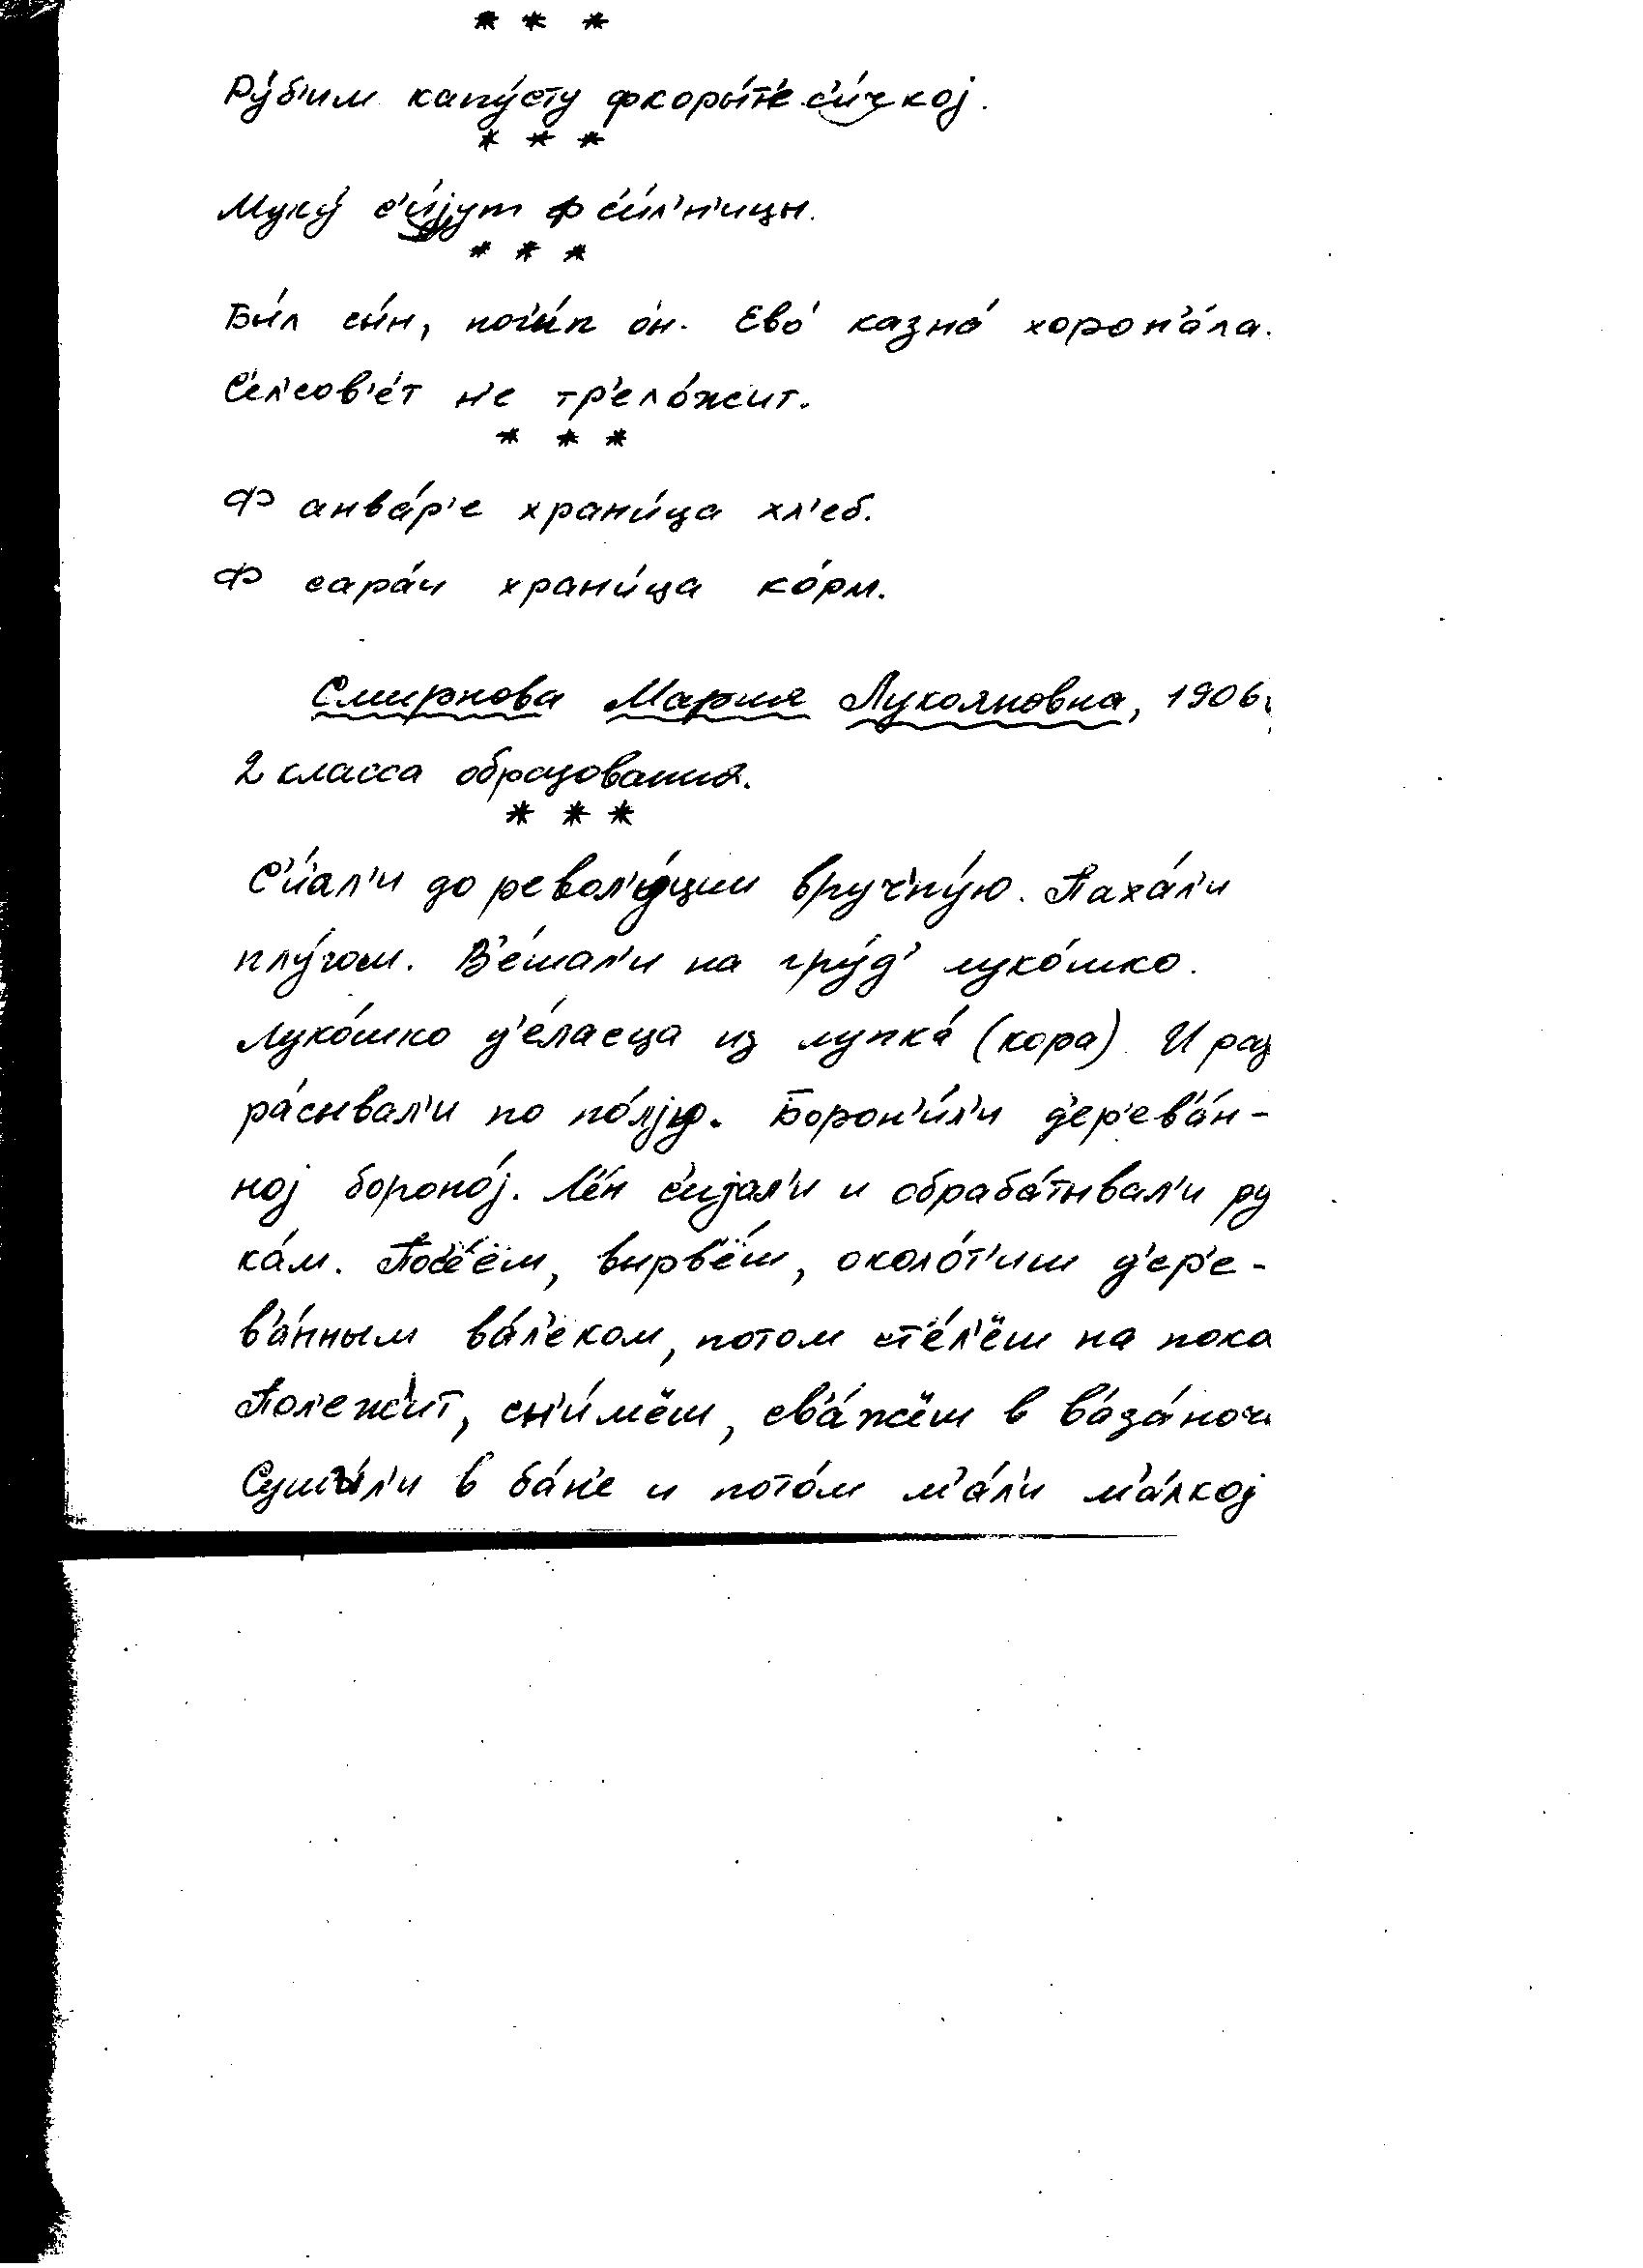 * * *
Ру́б'им капу́сту фкоры́т'е с'и́чкој.
* * *
Муку́ с'и́јут ф си́л'н'ицы.
* * *
Бы́л сы́н, пог'и́п о́н. Ево́ казна́ хорон'а́ла.
С'ел'сов'е́т н'е тр'ело́жит.
* * *
Ф анва́р'е храни́ца хл'еб.
Ф сара́и храни́ца ко́рм.
Смирнова Мария Лукояновна, 1906,
2 класса образования.
* * *
С'и́ал'и до револ'у́ции вруч'ну́ю. Паха́л'и
плу́гом. В'е́шал'и на гру́д' луко́шко.
Луко́шко д'е́лаеца из лупка́ (кора). И раз
ра́сывал'и по по́лју. Борон'и́л'и д'ер'ев'а́н-
ној бороно́ј. Л'ён с'ијал'и и обраба́тывал'и ру
ка́м. Пос'е́ём, вырв'ёш, около́т'иш д'ер'е-
в'а́нным ва́л'еком, потом ст'е́л'ёш на пока
Пол'ежи́т, сн'и́мёш, св'а́жёш в в'аза́ноч
Суши́л'и в ба́н'е и пото́м м'а́л'и м'а́лкој